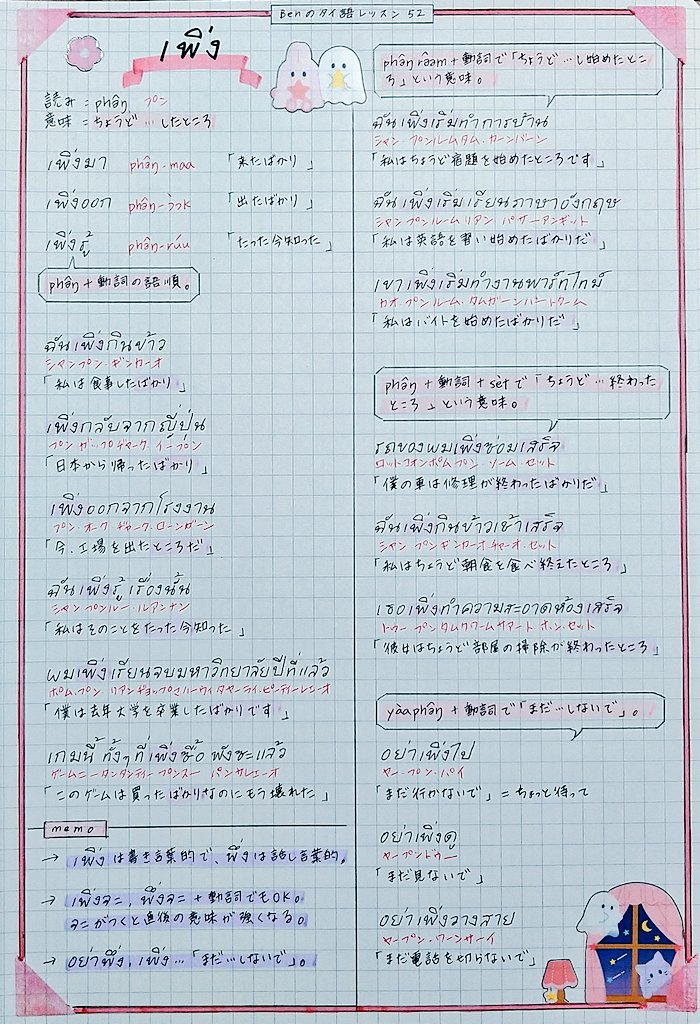 Benのタイ語レッスン 52
เพิ่ง
読み = phâŋ プン
意味 = ちょうど…したところ
เพิ่งมา phâŋ-maa 「来たばかり」
เพิ่งออก phâŋ-ɔ̀ɔk 「出たばかり」
เพิ่งรู้ phâŋ-rúu 「たった今知った」
phâŋ + 動詞の語順。
ฉันเพิ่งกินข้าว
シャンプン・ギンカーオ
「私は食事したばかり」
เพิ่งกลับจากญี่ปุ่น
「日本から帰ったばかり」
เพิ่งออกจากโรงงาน
プン・オーク チャーク・ローンガーン
「今、工場を出たところだ」
ฉันเพิ่งรู้ เรื่องนั้น
シャンプンルー・ルアンナン
「私はそのことをたった今知った」
ผมเพิ่งเรียนจบมหาวิทยาลัยปีที่แล้ว
「僕は去年大学を卒業したばかりです」
เกมนี้ ทั้งๆที่เพิ่งซื้อ พังซะแล้ว
ゲームニータンタンティープンスー パンサレェーオ
「このゲームは買ったばかりなのにもう壊れた」
memo
→ เพิ่งは書き言葉的で、พึ่งは話し言葉的。
→ เพิ่งจะ, พึ่งจะ + 動詞でもOK。
จะがつくと直後の意味が強くなる。
→ อย่าพึ่ง, เพิ่ง…「まだ…しないで」。
phâŋ râəm + 動詞で「ちょうど…し始めたとこ
ろ」という意味。
ฉันเพิ่งเริ่มทำการบ้าน
シャン・プンルームタム・カーンバーン
「私はちょうど宿題を始めたところです」
ฉันเพิ่งเริ่มเรียนภาษาอังกฤษ
シャンプンルームリアン・パサーアンギット
「私は英語を習い始めたばかりだ」
เขาเพิ่งเริ่มทำงานพาร์ทไทม์
カオ・プンルーム・タムガーンパートターム
「私はバイトを始めたばかりだ」
phâŋ + 動詞 + sèt で「ちょうど…終わった
ところ」という意味。
รถของผมเพิ่งซ่อมเสร็จ
ロットコォンポムプン・ソーム・セット
「僕の車は修理が終わったばかりだ」
ฉันเพิ่งกินข้าวเช้าเสร็จ
シャン プンギンカーオチャーオ・セット
「私はちょうど朝食を食べ終えたところ」
เธอเพิ่งทำความสะอาดห้องเสร็จ
トゥー・プンタムクワームサアート・ホン・セット
「彼女はちょうど部屋の掃除が終わったところ」
yàaphâŋ + 動詞で「まだ…しないで」。
อย่าเพิ่งไป
ヤー・プン・パイ
「まだ行かないで」= ちょっと待って
อย่าเพิ่งดู
ヤープンドゥー
「まだ見ないで」
อย่าเพิ่งวางสาย
ヤープン・ワーンサーイ
「まだ電話を切らないで」